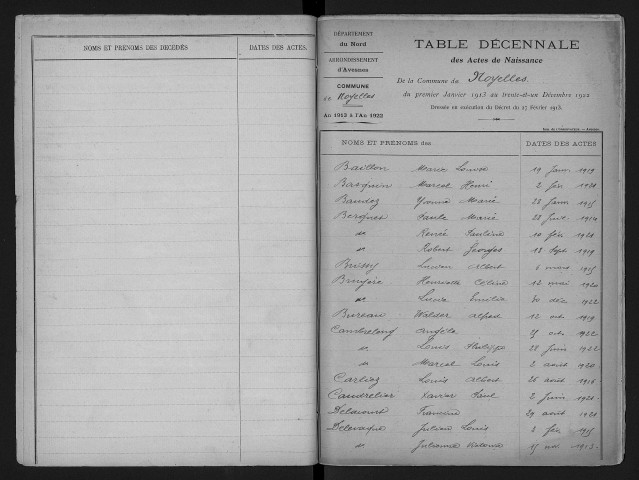 NOMS ET PRÉNOMS DES DÉCÉDÉS DATES DES ACTES.
DÉPARTEMENT
du Nord
ARRONDISSEMENT
d'Avesnes
COMMUNE
de Noyelles
An 1913 à l'An 1922
TABLE DÉCENNALE
des Actes de Naissance
De la Commune de Noyelles
du premier Janvier 1913 au trente-et-un Décembre 1922
Dressée en exécution du Décret du 17 Février 1915
NOMS ET PRÉNOMS des DATES DES ACTES
Bailton Marie Louise 19 Janv 1919
Basquin Marcel Henri 2 fév 1921
Baudez Yvonne Marie 22 Janv 1915
Bergues Paule Marie 22 1914
do Renée Pauline 10 fév 1920
do Robert Georges 18 Sept 1919
Brissy Lucien Albert 6 mars 1915
Bruyère Henriette Céline 12 mai 1920
do Lucie Emilia 30 déc 1922
Bureau Walder Alfred 12 oct 1919
Cambrelong Angèle oct 1922
do Louis Philippe 28 Juin 1922
do Marcel Louis 2 août 1920
Carliez Louis Albert 26 août 1916
Caudrelier Xavier Paul 2 Juin 1921
Delacourt Francine 29 août 1921
Delevaque Julien Louis 2 fév 1915
do Julienne 1913